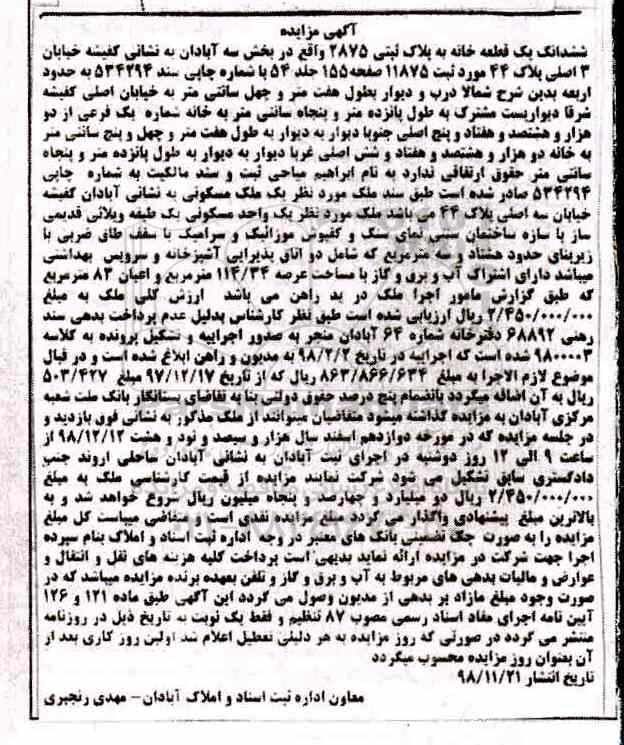 آگهی مزایده
ششدانگ یک قطعه خانه به پلاک ثبتی ۲۸۷۵ واقع در بخش سه آبادان به نشانی کفیشه خیابان
۳ اصلی پلاک ۴۴ مورد ثبت ۱۱۸۷۵ صفحه ۱۵۵ جلد ۵۴ با شماره چاپی سند ۵۳۴۲۹۴ به حدود
اربعه بدین شرح شمالا درب و دیوار بطول هفت متر و چهل سانتی متر به خیابان اصلی کفیشه
شرقا دیواریست مشترک به طول پانزده متر و پنجاه سانتی متر به خانه شماره یک فرعی از دو
هزار و هشتصد و هفتاد و پنج اصلی جنوبا دیوار به دیوار به طول هفت متر و چهل و پنج سانتی متر
به خانه دو هزار و هشتصد و هفتاد و شش اصلی غربا دیوار به دیوار به طول پانزده متر و پنجاه
سانتی متر حقوق ارتفاقی ندارد به نام ابراهیم میاحی ثبت و سند مالکیت به شماره چاپی
۵۳۴۲۹۴ صادر شده است طبق سند ملک مورد نظر یک ملک مسکونی به نشانی آبادان کفیشه
خیابان سه اصلی پلاک ۴۴ می باشد ملک مورد نظر یک واحد مسکونی یک طبقه ویلائی قدیمی
ساز با سازه ساختمان سنتی نمای سنگ و کفپوش موزائیک و سرامیک با سقف طاق ضربی با
زیربنای حدود هشتاد و سه مترمربع که شامل دو اتاق پذیرایی آشپزخانه و سرویس بهداشتی
میباشد دارای اشتراک آب و برق و گاز با مساحت عرصه ۱۱۴/۳۴ مترمربع و اعیان ۸۳ مترمربع
که طبق گزارش مامور اجرا ملک در ید راهن می باشد ارزش کلی ملک به مبلغ
۲/۴۵۰/۰۰۰/۰۰۰ ریال ارزیابی شده است طبق نظر کارشناس بدلیل عدم پرداخت بدهی سند
رهنی ۶۸۸۹۲ دفترخانه شماره ۶۴ آبادان منجر به صدور اجراییه و تشکیل پرونده به کلاسه
۹۸۰۰۰۰۳ شده است که اجراییه در تاریخ ۹۸/۲/۲ به مدیون و راهن ابلاغ شده است و در قبال
موضوع لازم الاجرا به مبلغ ۸۶۳/۸۶۶/۶۳۴ ریال که از تاریخ ۹۷/۱۲/۱۷ مبلغ ۵۰۳/۴۲۷
ریال به آن اضافه میگردد بانضمام پنج درصد حقوق دولتی بنا به تقاضای بستانکار بانک ملت شعبه
مرکزی آبادان به مزایده گذاشته میشود متقاضیان میتوانند از ملک مذکور به نشانی فوق بازدید و
در جلسه مزایده که در مورخه دوازدهم اسفند سال هزار و سیصد و نود و هشت ۹۸/۱۲/۱۲ از
ساعت ۹ الی ۱۲ روز دوشنبه در اجرای ثبت آبادان به نشانی آبادان ساحلی اروند جنب
دادگستری سابق تشکیل می شود شرکت نمایند مزایده از قیمت کارشناسی ملک به مبلغ
۲/۴۵۰/۰۰۰/۰۰۰ ریال دو میلیارد و چهارصد و پنجاه میلیون ریال شروع خواهد شد و به
بالاترین مبلغ پیشنهادی واگذار می گردد مبلغ مزایده نقدی است و متقاضی میباست کل مبلغ
مزایده را به صورت چک تضمینی بانک های معتبر در وجه اداره ثبت اسناد و املاک بنام سپرده
اجرا جهت شرکت در مزایده ارائه نماید بدیهی است پرداخت کلیه هزینه های نقل و انتقال و
عوارض و مالیات بدهی های مربوط به آب و برق و گاز و تلفن بعهده برنده مزایده میباشد که در
صورت وجود مبلغ مازاد بر بدهی از مدیون وصول می گردد این آگهی طبق ماده ۱۲۱ و ۱۲۶
آیین نامه اجرای مفاد اسناد رسمی مصوب ۸۷ تنظیم و فقط یک نوبت به تاریخ ذیل در روزنامه
منتشر می گردد در صورتی که روز مزایده به هر دلیلی تعطیل اعلام شد اولین روز کاری بعد از
آن بعنوان روز مزایده محسوب میگردد
تاریخ انتشار ۹۸/۱۱/۲۱
معاون اداره ثبت اسناد و املاک آبادان - مهدی رنجبری